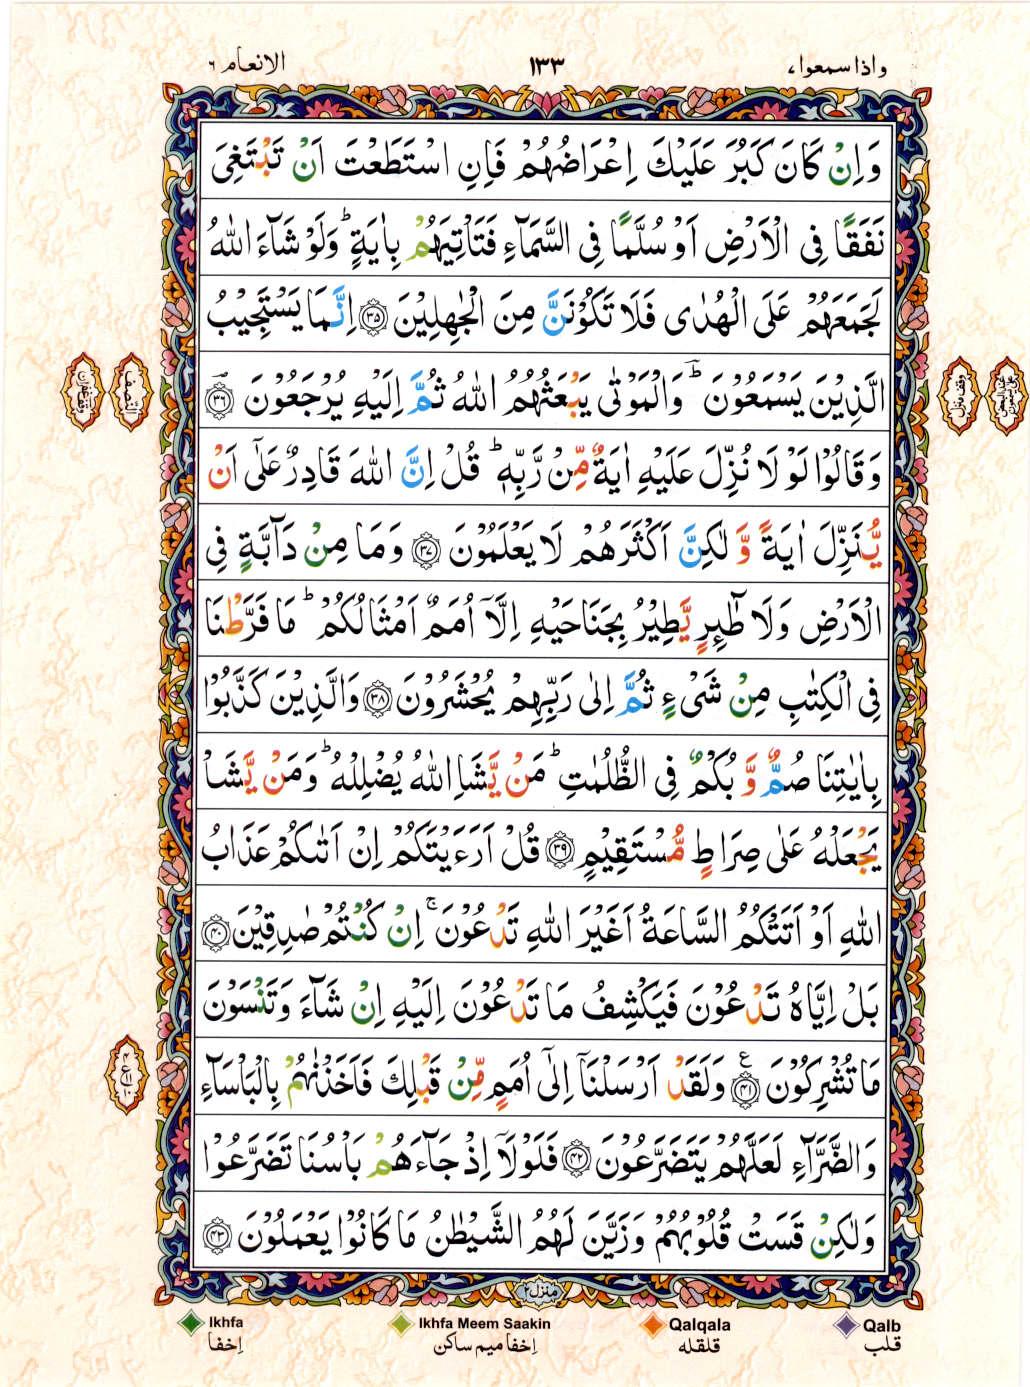 واذا سمعوا ٧
١٣٣
الانعام ٦
وَاِنْ كَانَ كَبُرَ عَلَيْكَ اِعْرَاضُهُمْ فَاِنِ اسْتَطَعْتَ اَنْ تَبْتَغِىَ
نَفَقًا فِى الْاَرْضِ اَوْ سُلَّمًا فِى السَّمَآءِ فَتَاْتِيَهُمْ بِاٰيَةٍ ؕ وَلَوْ شَآءَ اللّٰهُ
لَجَمَعَهُمْ عَلَى الْهُدٰى فَلَا تَكُوْنَنَّ مِنَ الْجٰهِلِيْنَ ﴿۳۵﴾ اِنَّمَا يَسْتَجِيْبُ
الَّذِيْنَ يَسْمَعُوْنَ ؕ وَالْمَوْتٰى يَبْعَثُهُمُ اللّٰهُ ثُمَّ اِلَيْهِ يُرْجَعُوْنَ ﴿۳۶﴾
وَقَالُوْا لَوْ لَا نُزِّلَ عَلَيْهِ اٰيَةٌ مِّنْ رَّبِّهٖ ؕ قُلْ اِنَّ اللّٰهَ قَادِرٌ عَلٰٓى اَنْ
يُّنَزِّلَ اٰيَةً وَّ لٰكِنَّ اَكْثَرَهُمْ لَا يَعْلَمُوْنَ ﴿۳۷﴾ وَمَا مِنْ دَآبَّةٍ فِى
الْاَرْضِ وَلَا طٰٓئِرٍ يَّطِيْرُ بِجَنَاحَيْهِ اِلَّاۤ اُمَمٌ اَمْثَالُكُمْ ؕ مَا فَرَّطْنَا
فِى الْكِتٰبِ مِنْ شَىْءٍ ثُمَّ اِلٰى رَبِّهِمْ يُحْشَرُوْنَ ﴿۳۸﴾ وَالَّذِيْنَ كَذَّبُوْا
بِاٰيٰتِنَا صُمٌّ وَّ بُكْمٌ فِى الظُّلُمٰتِ ؕ مَنْ يَّشَاِ اللّٰهُ يُضْلِلْهُ ؕ وَمَنْ يَّشَاْ
يَجْعَلْهُ عَلٰى صِرَاطٍ مُّسْتَقِيْمٍ ﴿۳۹﴾ قُلْ اَرَءَيْتَكُمْ اِنْ اَتٰىكُمْ عَذَابُ
اللّٰهِ اَوْ اَتَتْكُمُ السَّاعَةُ اَغَيْرَ اللّٰهِ تَدْعُوْنَ ۚ اِنْ كُنْتُمْ صٰدِقِيْنَ ﴿۴۰﴾
بَلْ اِيَّاهُ تَدْعُوْنَ فَيَكْشِفُ مَا تَدْعُوْنَ اِلَيْهِ اِنْ شَآءَ وَتَنْسَوْنَ
مَا تُشْرِكُوْنَ ﴿۴۱﴾ ع وَلَقَدْ اَرْسَلْنَاۤ اِلٰٓى اُمَمٍ مِّنْ قَبْلِكَ فَاَخَذْنٰهُمْ بِالْبَاْسَآءِ
وَالضَّرَّآءِ لَعَلَّهُمْ يَتَضَرَّعُوْنَ ﴿۴۲﴾ فَلَوْلَاۤ اِذْ جَآءَهُمْ بَاْسُنَا تَضَرَّعُوْا
وَلٰكِنْ قَسَتْ قُلُوْبُهُمْ وَزَيَّنَ لَهُمُ الشَّيْطٰنُ مَا كَانُوْا يَعْمَلُوْنَ ﴿۴۳﴾
منزل ٢
Qalb
قلب
Qalqala
قلقله
Ikhfa Meem Saakin
اِخفا ميم ساكن
Ikhfa
اِخفا